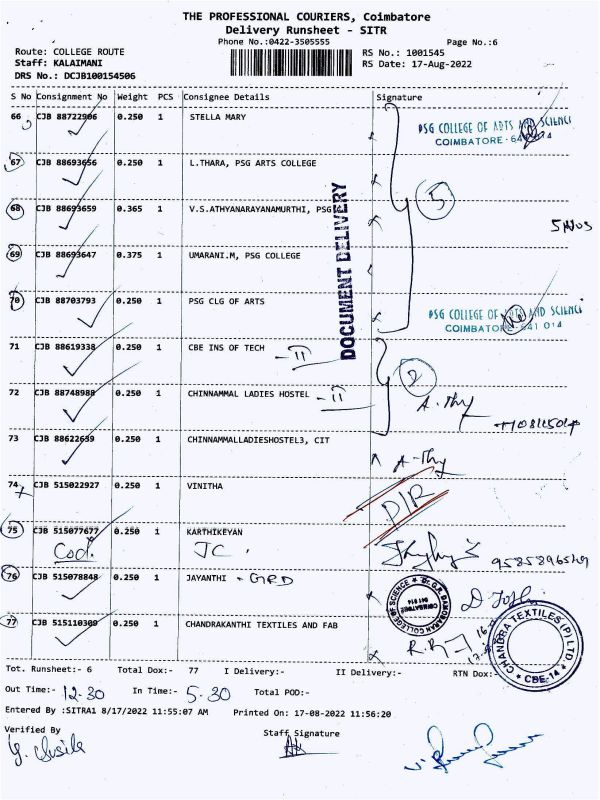 THE PROFESSIONAL COURIERS, Coimbatore
Delivery Runsheet - SITR
Phone No.:0422-3505555 Page No.:6
Route: COLLEGE ROUTE RS No.: 1001545
Staff: KALAIMANI RS Date: 17-Aug-2022
DRS No.: DCJB100154506
S No Consignment No Weight PCS Consignee Details Signature
66 CJB 88722906 0.250 1 STELLA MARY
PSG COLLEGE OF ARTS AND SCIENCE
COIMBATORE - 641 014
67 CJB 88693656 0.250 1 L.THARA, PSG ARTS COLLEGE
5
68 CJB 88693659 0.365 1 V.S.ATHYANARAYANAMURTHI, PSG
DOCUMENT DELIVERY
69 CJB 88693647 0.375 1 UMARANI.M, PSG COLLEGE
70 CJB 88703793 0.250 1 PSG CLG OF ARTS
PSG COLLEGE OF ARTS AND SCIENCE
COIMBATORE - 641 014
71 CJB 88619338 0.250 1 CBE INS OF TECH
2
72 CJB 88748988 0.250 1 CHINNAMMAL LADIES HOSTEL
73 CJB 88622639 0.250 1 CHINNAMMALLADIESHOSTEL3, CIT
74 CJB 515022927 0.250 1 VINITHA
D/R
75 CJB 515077677 0.250 1 KARTHIKEYAN
Cod. JC.
9585896549
76 CJB 515078848 0.250 1 JAYANTHI - GRD
77 CJB 515110309 0.250 1 CHANDRAKANTHI TEXTILES AND FAB
CHANDRA TEXTILES (P) LTD
CBE-14
Tot. Runsheet:- 6 Total Dox:- 77 I Delivery:- II Delivery:- RTN Dox:-
Out Time:- 12.30 In Time:- 5.30 Total POD:-
Entered By :SITRA1 8/17/2022 11:55:07 AM Printed On: 17-08-2022 11:56:20
Verified By Staff Signature